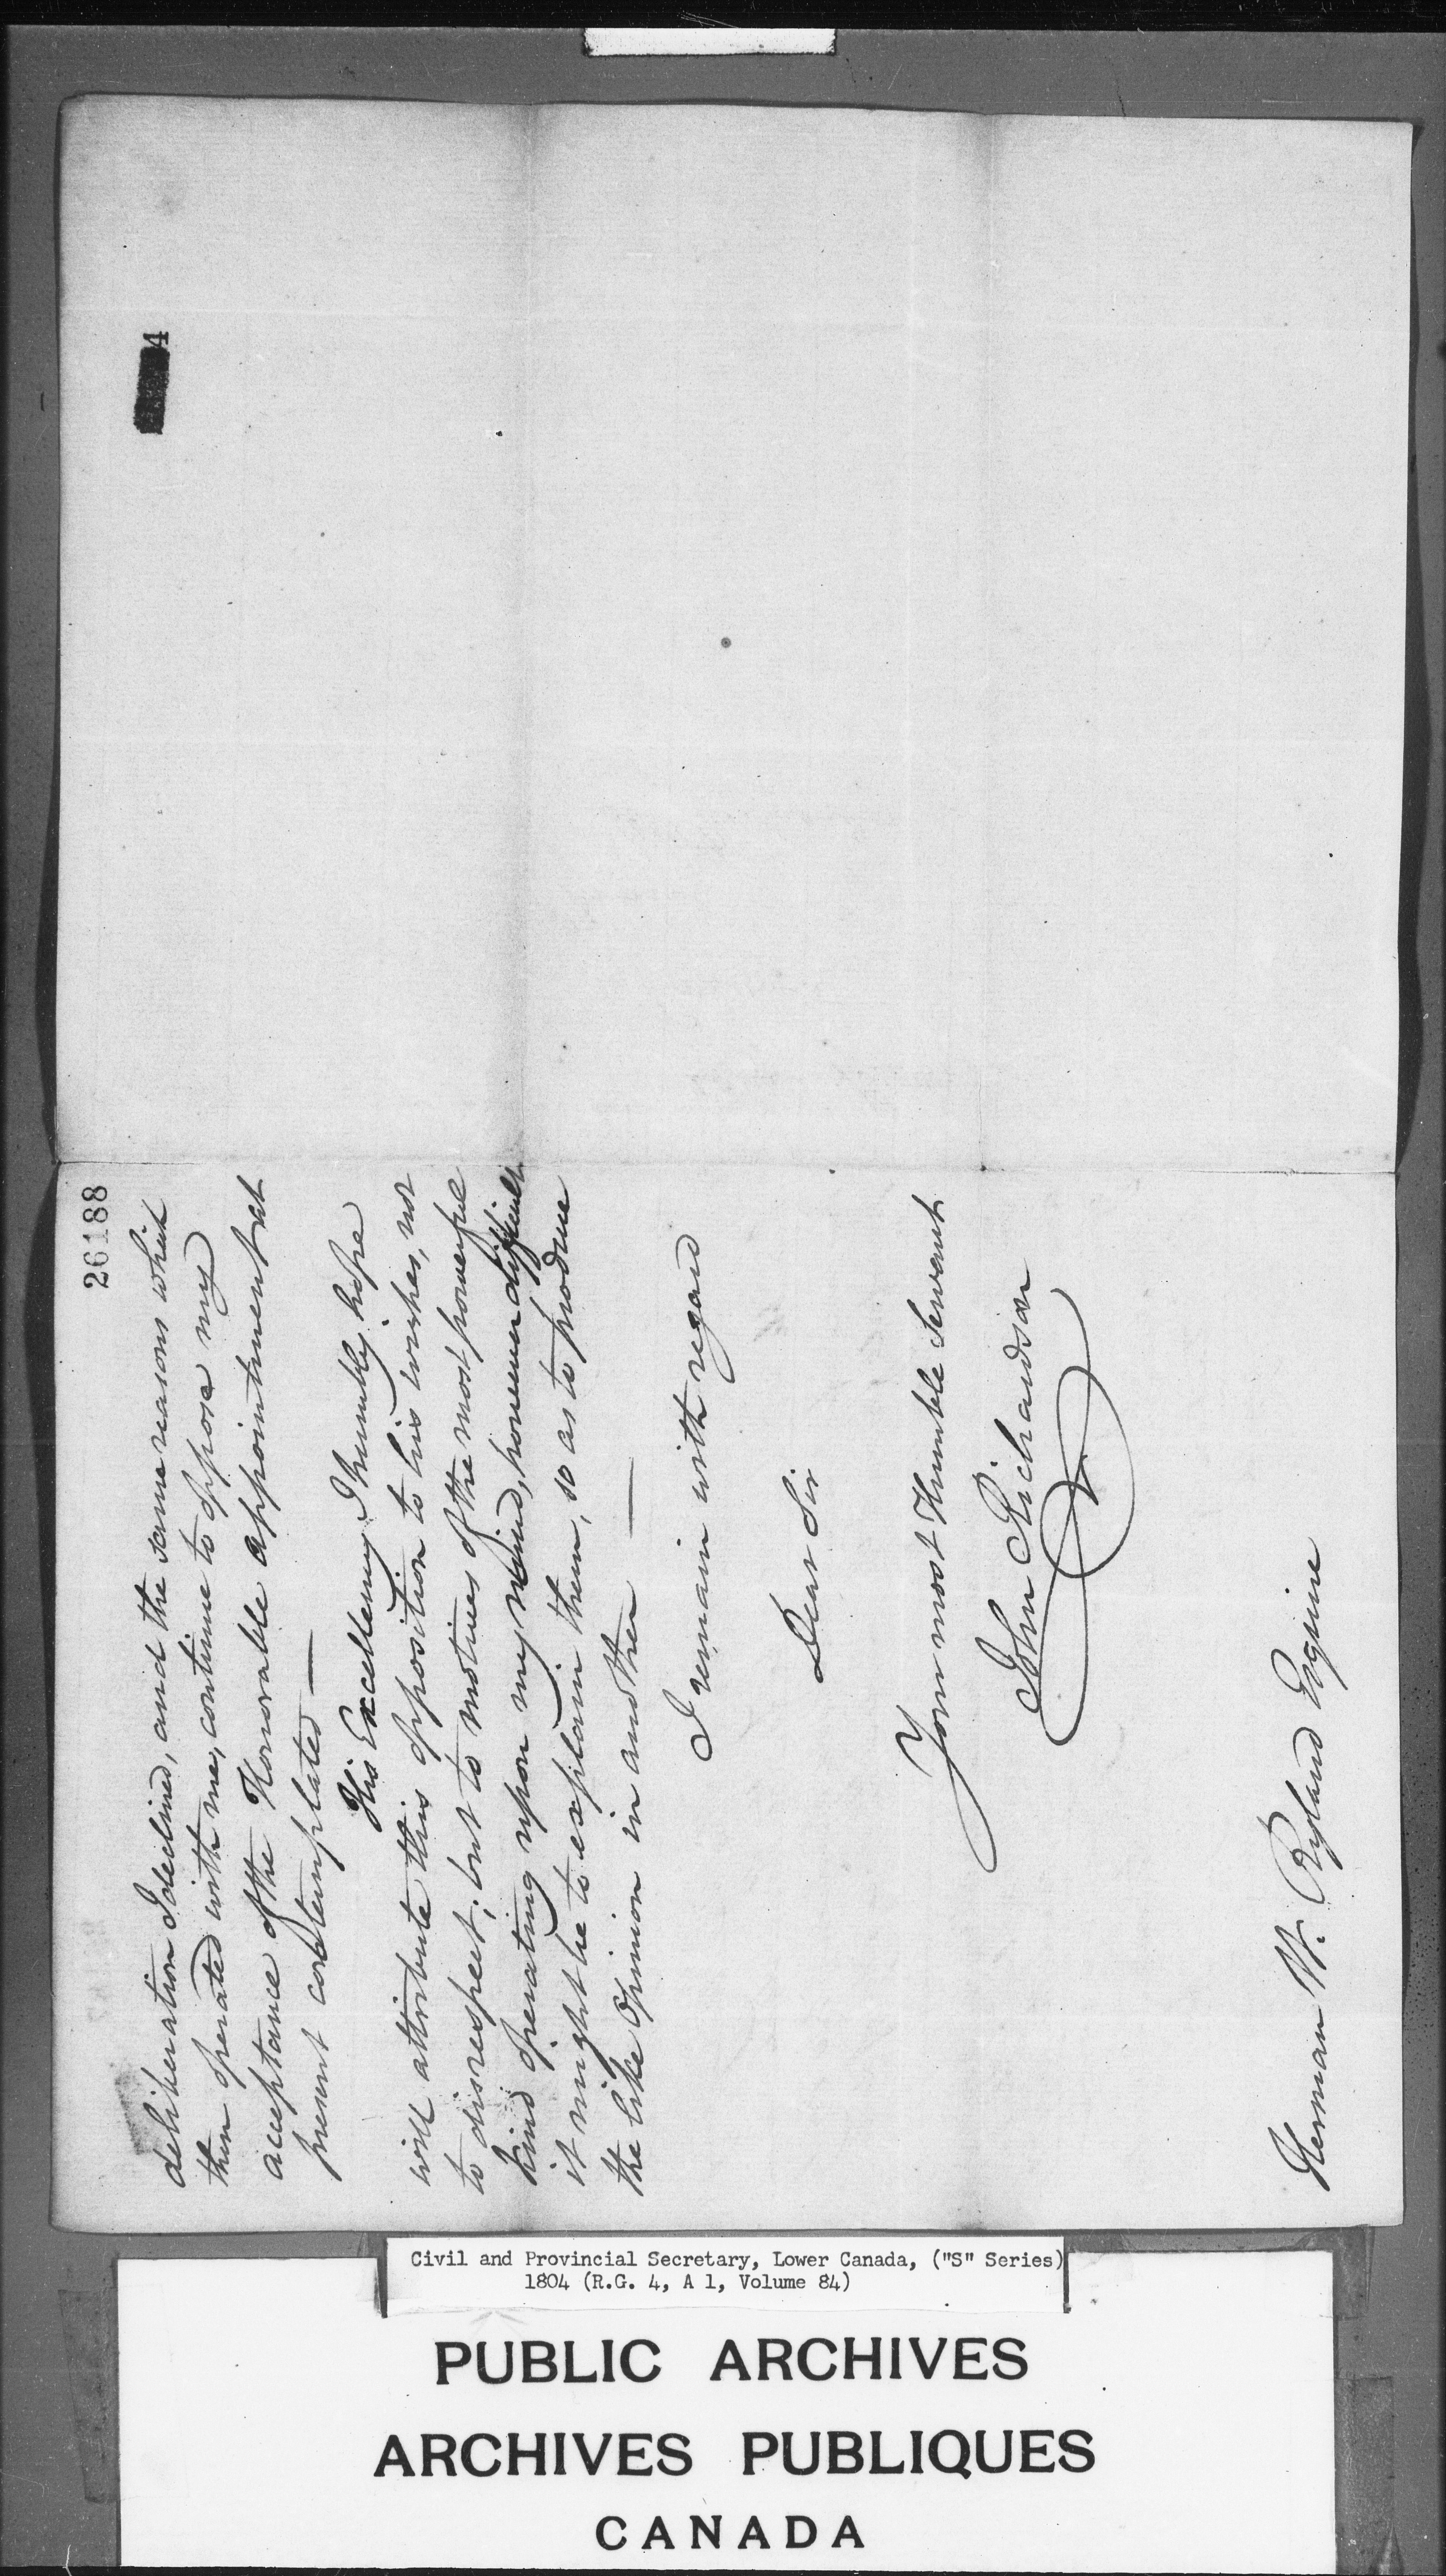 26188
deliberation I declined, and the same reasons which
then operated with me, continue to oppose my
acceptance of the Honorable appointment at
present contemplated —
His Excellency I humbly hope
will attribute this opposition to his wishes, not
to disrespect; but to motives of the most powerful
kind operating upon my Mind, however difficult
it might be to explain them, so as to produce
the like Opinion in another —
I remain with regard
Dear Sir
Your most Humble Servant
John Richardson
Herman W. Ryland Esquire
4
Civil and Provincial Secretary, Lower Canada, ("S" Series)
1804 (R.G. 4, A 1, Volume 84)
PUBLIC ARCHIVES
ARCHIVES PUBLIQUES
CANADA